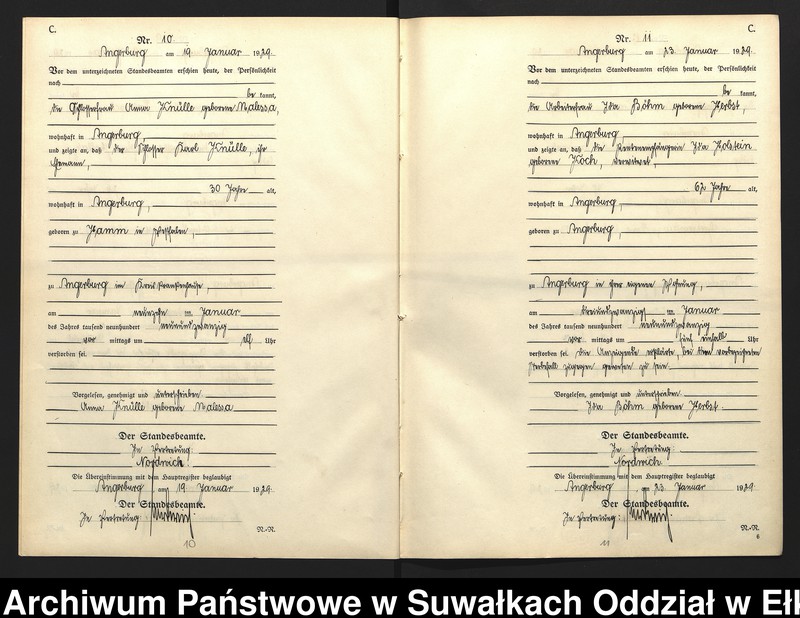 C.
Nr. 10
Angerburg am 19 Januar 1929
Vor dem unterzeichneten Standesbeamten erschien heute, der Persönlichkeit
nach
be kannt,
die Schlosserfrau Anna Knülle geborene Malessa,
wohnhaft in Angerburg,
und zeigte an, daß der Schlosser Karl Knülle, ihr
Ehemann,
30 Jahre alt,
wohnhaft in Angerburg,
geboren zu Hamm in Westfalen,
zu Angerburg im Kreiskrankenhause,
am neunzehn ten Januar
des Jahres tausend neunhundert neunundzwanzig
vor mittags um elf Uhr
verstorben sei.
Vorgelesen, genehmigt und unterschrieben
Anna Knülle geborene Malessa
Der Standesbeamte.
In Vertretung:
Nordwich
Die Übereinstimmung mit dem Hauptregister beglaubigt
Angerburg am 19 Januar 1929
Der Standesbeamte.
In Vertretung:
N.-R.
10
C.
Nr. 11
Angerburg am 23. Januar 1929
Vor dem unterzeichneten Standesbeamten erschien heute, der Persönlichkeit
nach
be kannt,
die Arbeiterfrau Ida Böhm geborene Herbst,
wohnhaft in Angerburg,
und zeigte an, daß die Rentenempfängerin Ida Holstein
geborene Koch, verwitwet,
62 Jahre alt,
wohnhaft in Angerburg,
geboren zu Angerburg,
zu Angerburg in ihrer eigenen Wohnung,
am dreiundzwanzigsten Januar
des Jahres tausend neunhundert neunundzwanzig
vor mittags um fünf einhalb Uhr
verstorben sei. Die Anzeigende erklärte, bei dem vorbezeichneten
Sterbefall zugegen gewesen zu sein.
Vorgelesen, genehmigt und unterschrieben
Ida Böhm geborene Herbst.
Der Standesbeamte.
In Vertretung:
Nordwich
Die Übereinstimmung mit dem Hauptregister beglaubigt
Angerburg am 23. Januar 1929
Der Standesbeamte.
In Vertretung:
N.-R.
6
11
Archiwum Państwowe w Suwałkach Oddział w Ełk